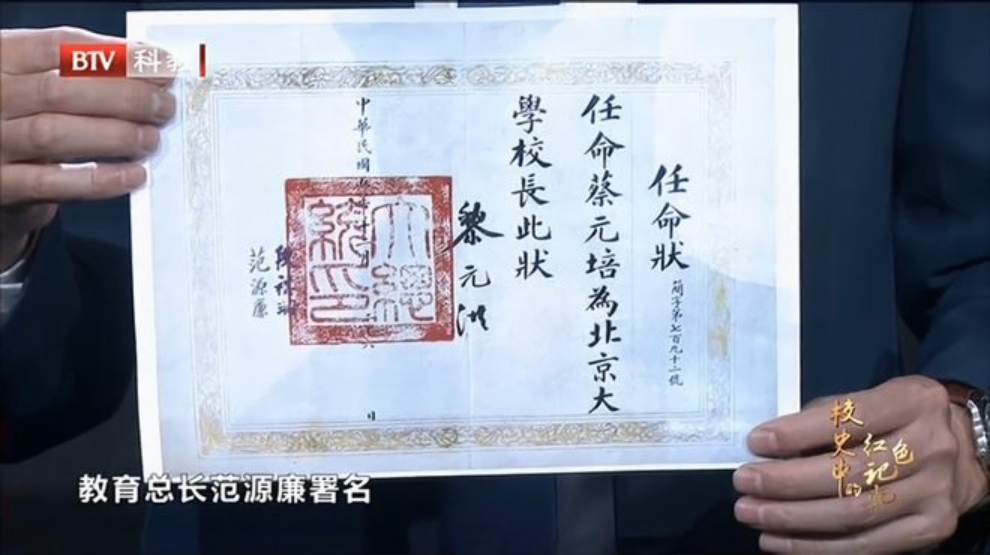 BTV 科教
任命狀
簡字第七百九十二號
任命蔡元培為北京大
學校長此狀
黎元洪
大總
統印
中華民國
日
范源廉
教育总长范源廉署名
校史中的
红色记忆